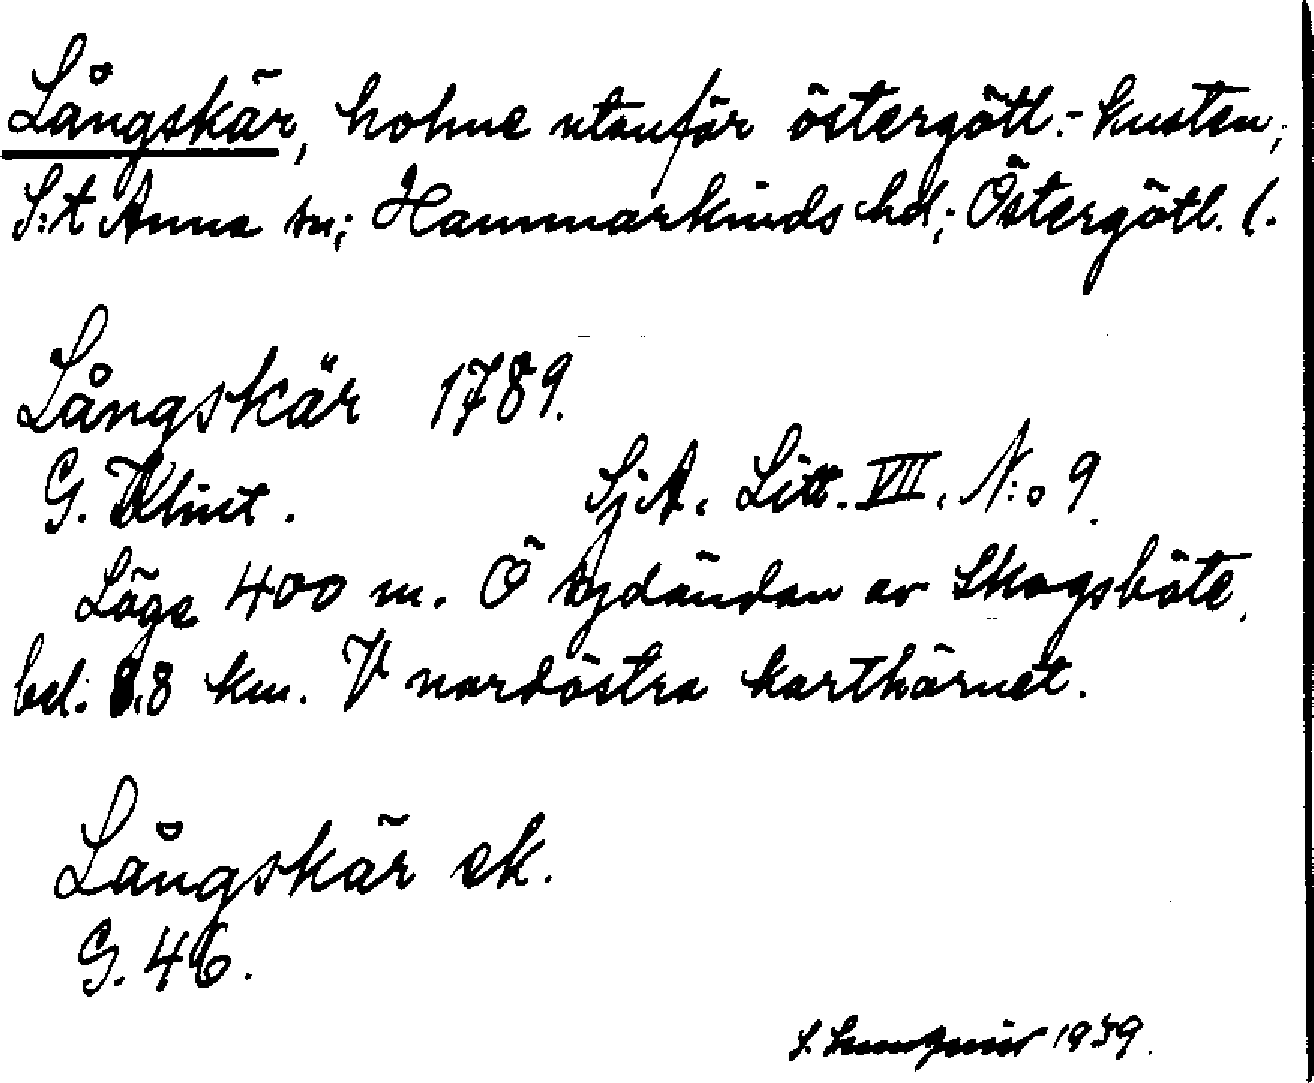 Långskär, holme utanför östergötl.-kusten;
S:t Anna sn; Hammarkinds hd; Östergötl. l.
Långskär 1789.
G. Klint. SjA. Litt. VII. N:o 9.
Läge 400 m. Ö sydändan av Skogsböte,
bel. 8.8 km. V nordöstra karthörnet.
Långskär ek.
G. 46.
S. 1939.